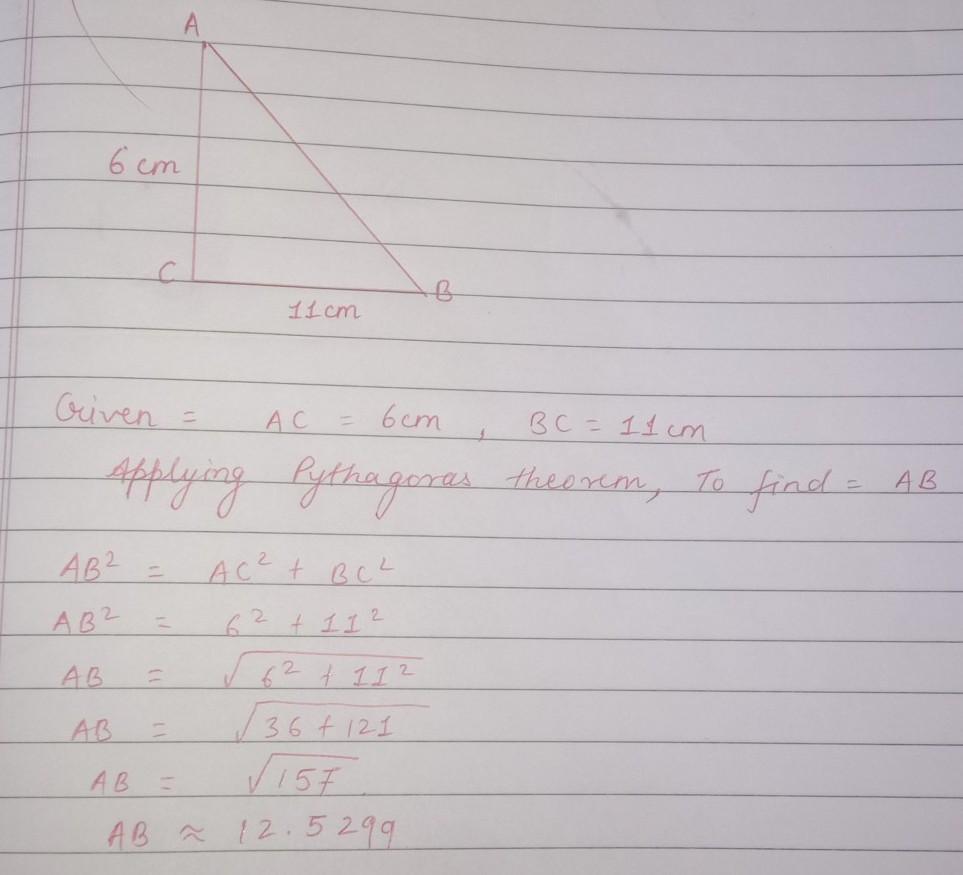 A
6 cm
C
B
11cm
Given = AC = 6cm , BC = 11cm
Applying Pythagoras theorem, To find = AB
AB² = AC² + BC²
AB² = 6² + 11²
AB = √6² + 11²
AB = √36 + 121
AB = √157
AB ≈ 12.5299